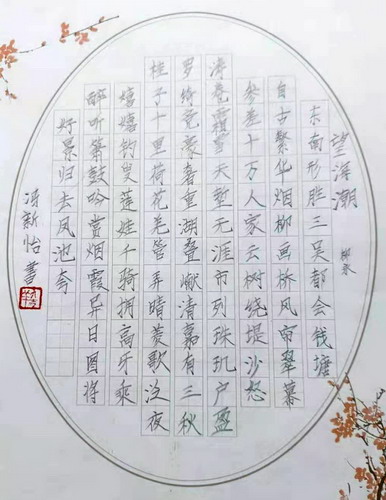 望海潮
柳永
东南形胜三吴都会钱塘
自古繁华烟柳画桥风帘翠幕
参差十万人家云树绕堤沙怒
涛卷霜雪天堑无涯市列珠玑户盈
罗绮竞豪奢重湖叠巘清嘉有三秋
桂子十里荷花羌管弄晴菱歌泛夜
嬉嬉钓叟莲娃千骑拥高牙乘
醉听箫鼓吟赏烟霞异日图将
好景归去凤池夸
冯新怡书